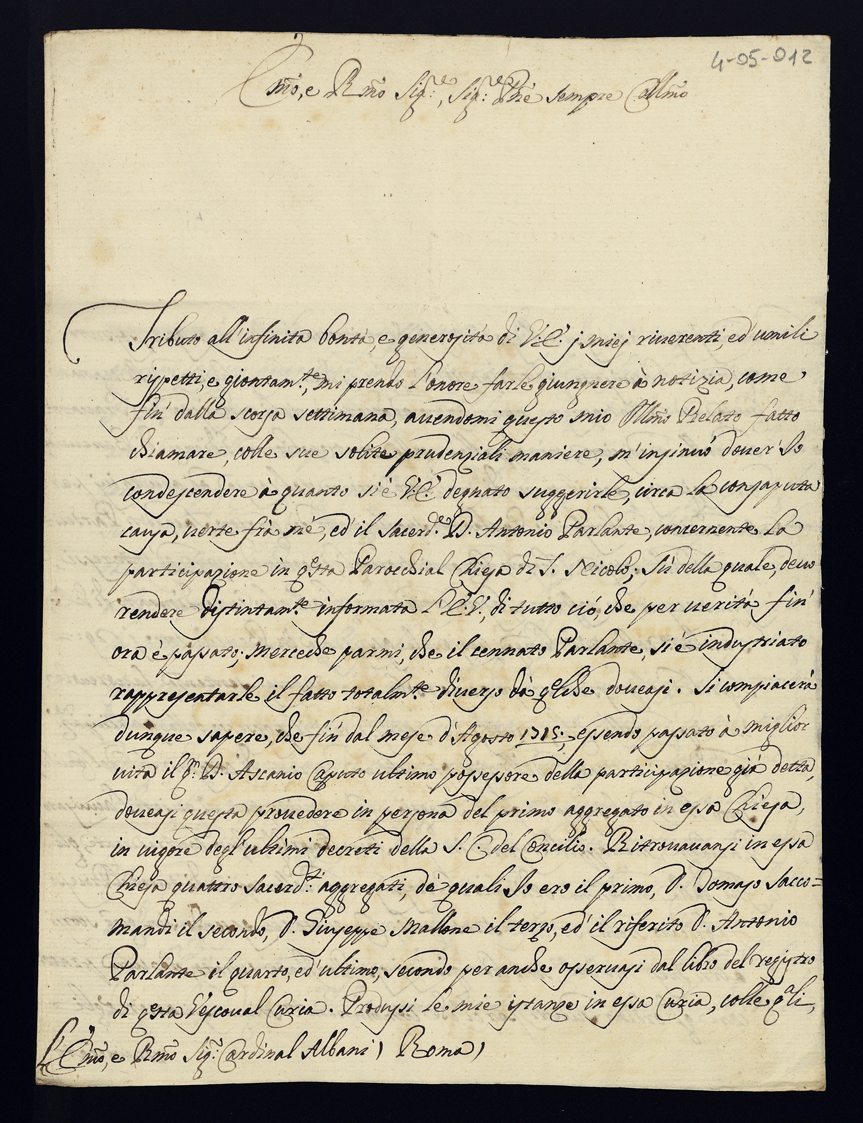 4-05-012
Emo, e Rmo Sig.re, Sig.re Pne sempre Collmo
Tributo all'infinita bontà, e generosità di V.E. j miej riuerenti, ed' umili
rispetti, e giontam.te, mi prendo l'onore farle giungnere à notizia, come
fin' dalla scorsa settimana, auendomi questo mio Illmo Prelato fatto
chiamare, colle sue solite prudenziali maniere, m'insinuò douer' Io
condescendere à quanto si è V.E. degnato suggerirle, circa la consaputa
causa, uerte frà mè, ed il Sacerd.e D. Antonio Parlante, concernente la
participazione in q.sta Parocchial Chiesa di S. Nicolò; Sù della quale, deuo
rendere distintam.te informata l'E.V. di tutto ciò, che per uerità fin'
ora è passato; mercecche parmi, che il cennato Parlante, si è industriato
rappresentarle il fatto totalm.te diuerso dà q.elche doueasi. Si compiacerà
dunque sapere, che fin' dal mese d'Agosto 1715:, essendo passato à miglior
uita il q.m D. Ascanio Caputo ultimo possessore della participazione già detta,
doueasi questa prouedere in persona del primo aggregato in essa Chiesa,
in uigore degl'ultimi decreti della S. C. del Concilio. Ritrouauansi in essa
Chiesa quattro Sacerd.ti aggregati, de quali Io ero il primo, D. Tomaso Sacco=
mandi il secondo, D. Giuseppe Mallone il terzo, ed' il riferito D. Antonio
Parlante il quarto, ed' ultimo, secondo per anche osseruasi dal libro del registro
di q.sta Vescoual Curia. Produssi le mie istanze in essa Curia, colle q.ali,
L'Emo, e Rmo Sig.r Cardinal Albani) Roma)